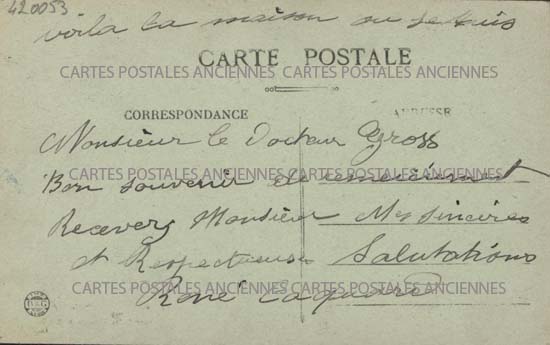 420053
voila la maison ou je suis
CARTE POSTALE
CARTES POSTALES ANCIENNES CARTES POSTALES ANCIENNES
CORRESPONDANCE
ADRESSE
Monsieur le Docteur Gross
CARTES POSTALES ANCIENNES CARTES POSTALES ANCIENNES
Bon souvenir de
Recevez Monsieur Mes sincères
et Respectueuses Salutations
CARTES POSTALES ANCIENNES CARTES POSTALES ANCIENNES
René